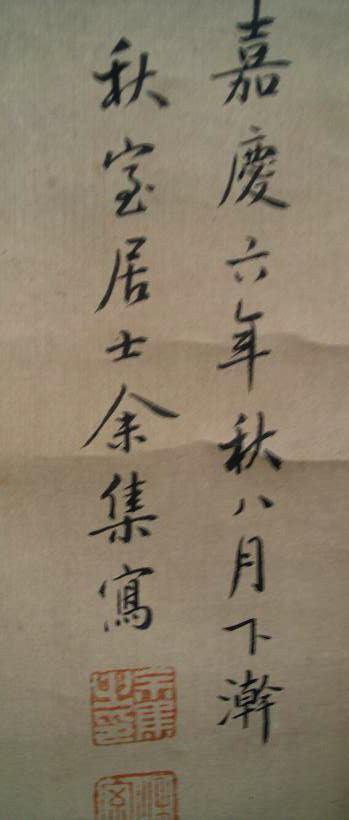 嘉慶六年秋八月下澣
秋室居士余集寫
余集之印